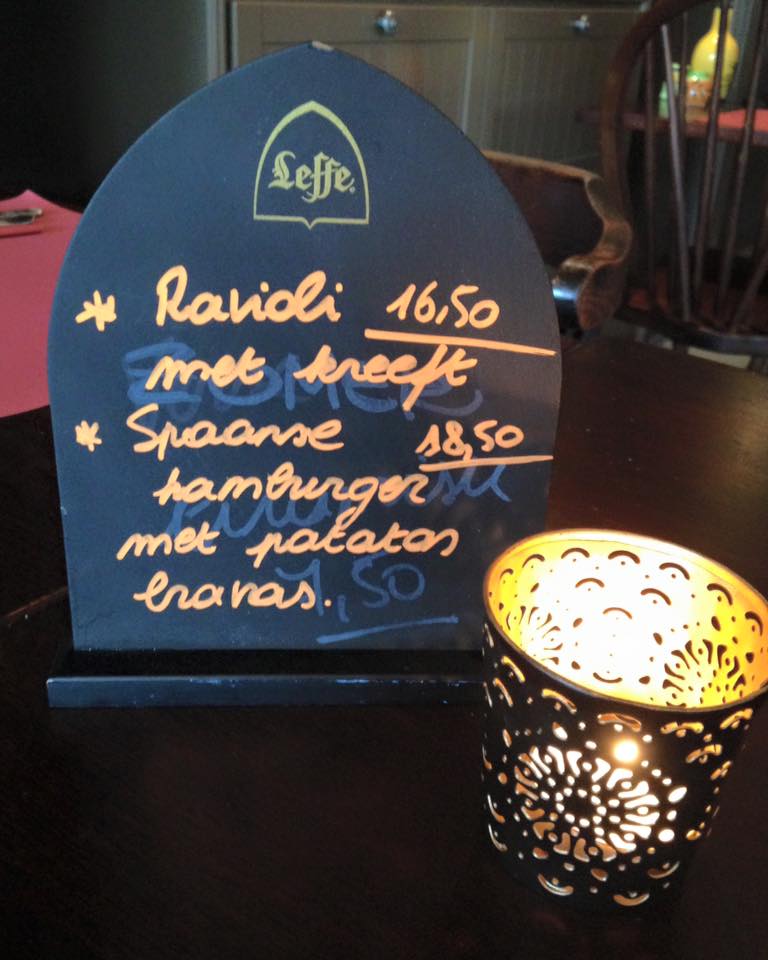 Leffe
* Ravioli 16,50
met kreeft
ZOMER
* Spaanse 18,50
hamburger
met patatas
bravas.
7,50